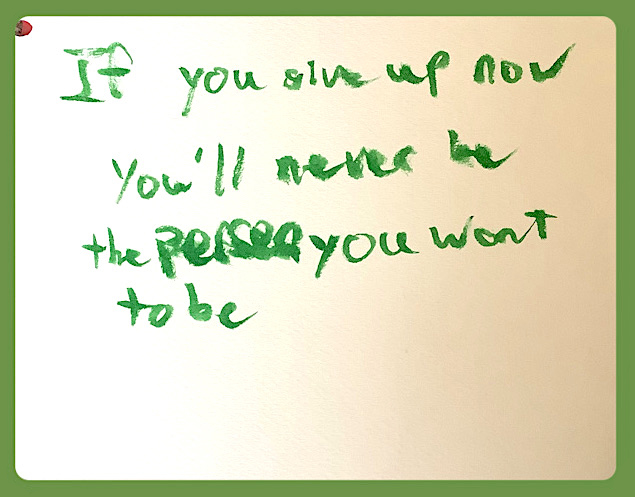 If you give up now
You'll never be
the person you want
to be